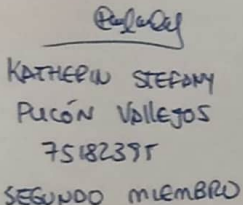 KATHERIN STEFANY
PUCÓN VALLEJOS
75182395
SEGUNDO MIEMBRO